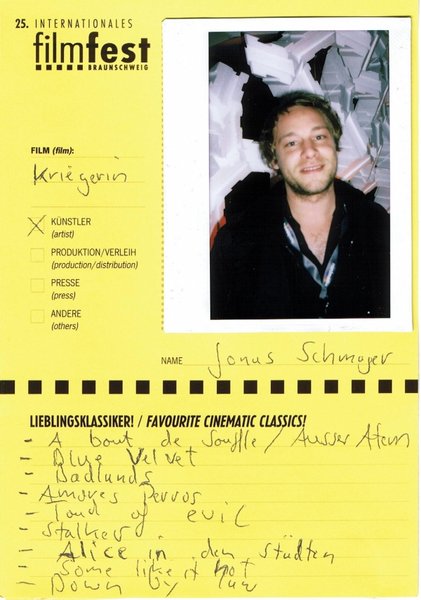 25. INTERNATIONALES
filmfest
BRAUNSCHWEIG
FILM (film):
Kriegerin
KÜNSTLER
(artist)
PRODUKTION/VERLEIH
(production/distribution)
PRESSE
(press)
ANDERE
(others)
NAME Jonas Schmager
LIEBLINGSKLASSIKER! / FAVOURITE CINEMATIC CLASSICS!
- A bout de souffle / Ausser Atem
- Blue Velvet
- Badlands
- Amores Perros
- Touch of evil
- Stalker
- Alice in den Städten
- Some like it hot
- Down by law